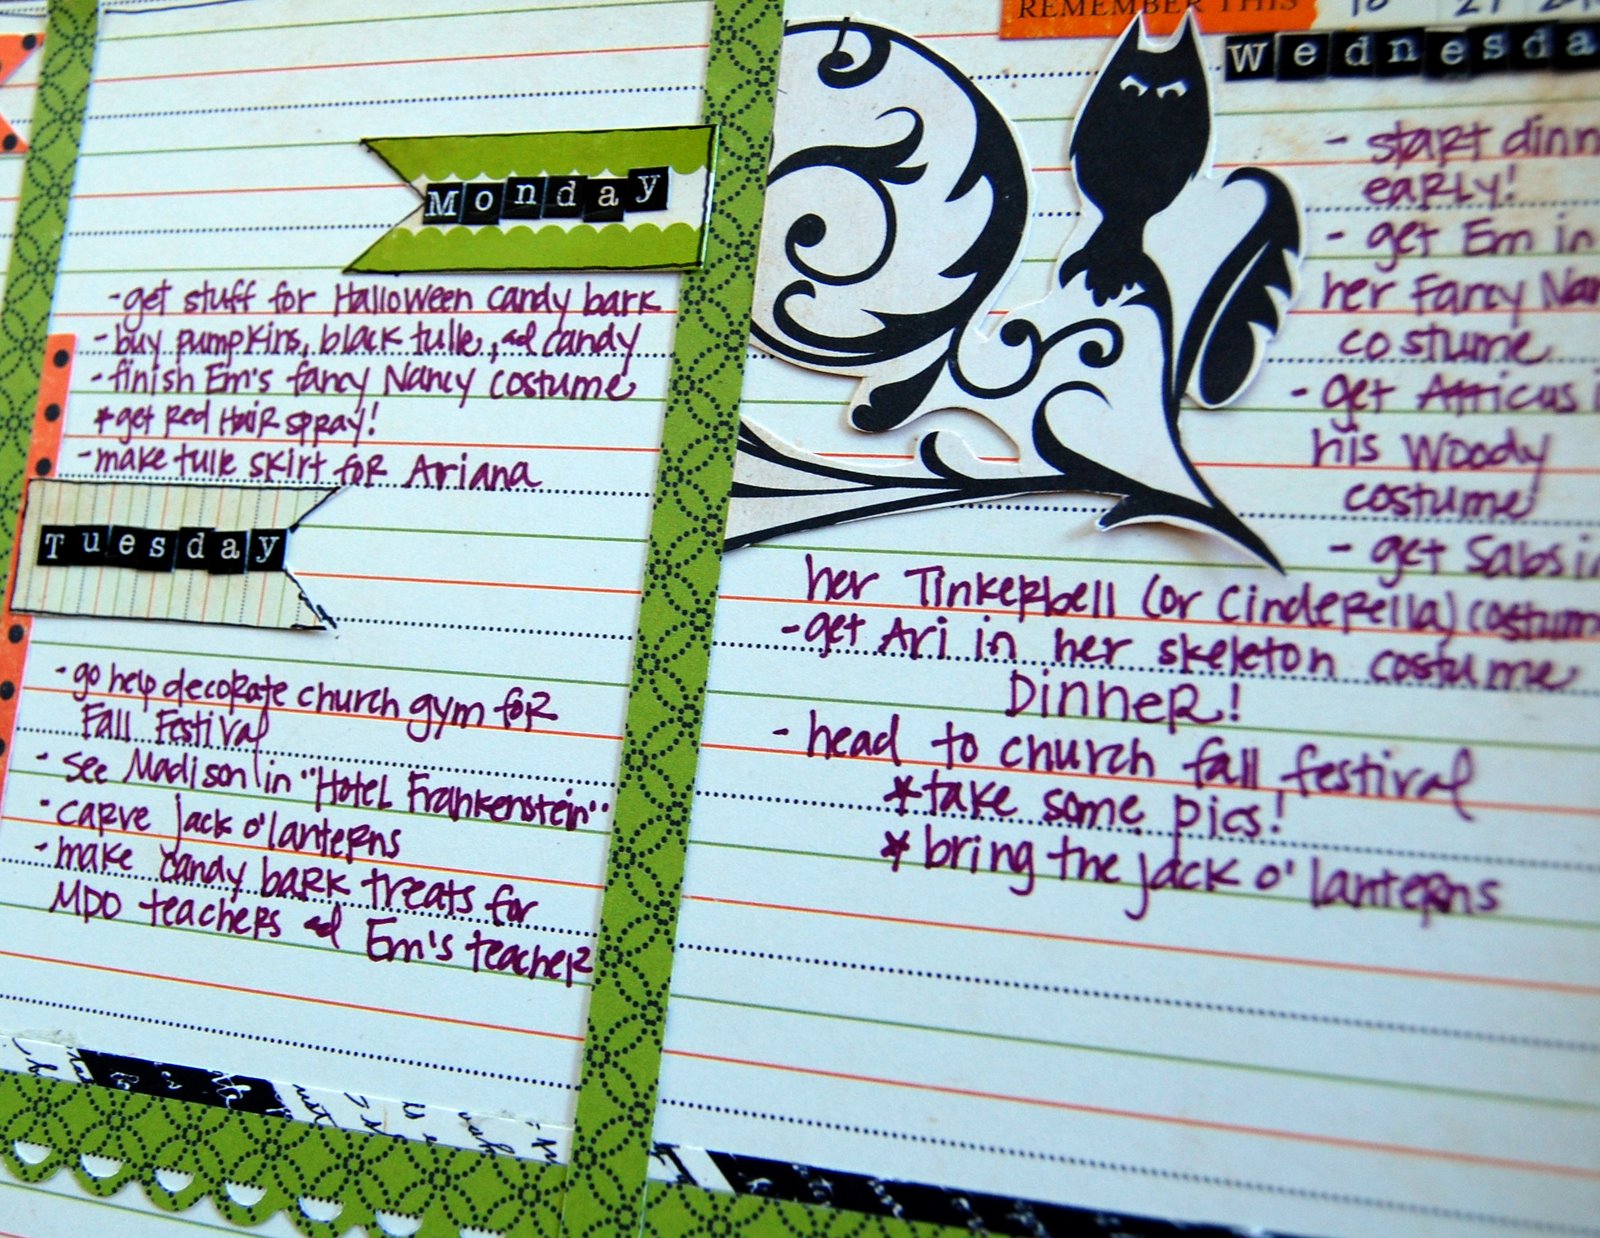 Monday
-get stuff for Halloween candy bark
-buy pumpkins, black tulle, and candy
-finish Em's fancy Nancy costume
*get Red HaiR spray!
-make tulle skirt foR Ariana
Tuesday
-go help decorate church gym foR
Fall Festival
-see Madison in "Hotel Frankenstein"
-carve jack o'lanterns
-make candy bark treats for
MDO teachers and Em's teacher
REMEMBER THIS
Wednesda
- start dinn
early!
- get Em in
her Fancy Nan
costume
- get Atticus i
his Woody
costume
- get Sabs in
her Tinkerbell (or Cinderella) costum
-get Ari in her skeleton costume
Dinner!
- head to church fall festival
*take some pics!
*bring the jack o' lanterns